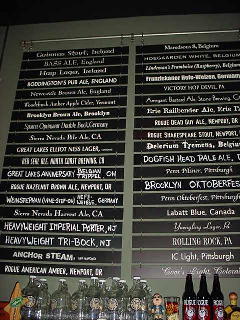 Guinness Stout, Ireland
BASS ALE, ENGLAND
Harp Lager, Ireland
BODDINGTON'S PUB ALE, ENGLAND
Newcastle Brown Ale, England
Woodchuck Amber Apple Cider, Vermont
Brooklyn Brown Ale, Brooklyn
Spaten Optimator Double Bock, Germany
Sierra Nevada Pale Ale, CA
GREAT LAKES ELLIOT NESS LAGER,
RED SEAL ALE, NORTH COAST BREWING, CA
GREAT LAKES ANNIVERSARY BELGIAN TRIPPEL, OH
ROGUE HAZELNUT BROWN ALE, NEWPORT, OR
WEIHENSTEPHAN HEFE WEISSE, GERMANY
Sierra Nevada Harvest Ale, CA
HEAVYWEIGHT IMPERIAL PORTER, NJ
HEAVYWEIGHT TRI-BOCK, NJ
ANCHOR STEAM
ROGUE AMERICAN AMBER, NEWPORT, OR
Maredsous 8, Belgium
HOEGAARDEN WHITE, BELGIUM
Lindeman's Framboise (Raspberry), Belgium
Franziskaner Hefe-Weizen, Germany
VICTORY HOP DEVIL, PA
Arrogant Bastard Ale, Stone Brewing
Erie Railbender Ale, Erie
ROGUE DEAD GUY ALE, NEWPORT, OR
ROGUE SHAKESPEARE STOUT, NEWPORT,
Delirium Tremens, Belgium
DOGFISH HEAD PALE ALE,
Penn Pilsner, Pittsburgh
BROOKLYN OKTOBERFEST
Penn Oktoberfest, Pittsburgh
Labatt Blue, Canada
Yuengling Lager, PA
ROLLING ROCK, PA
IC Light, Pittsburgh
Coors Light, Colorado